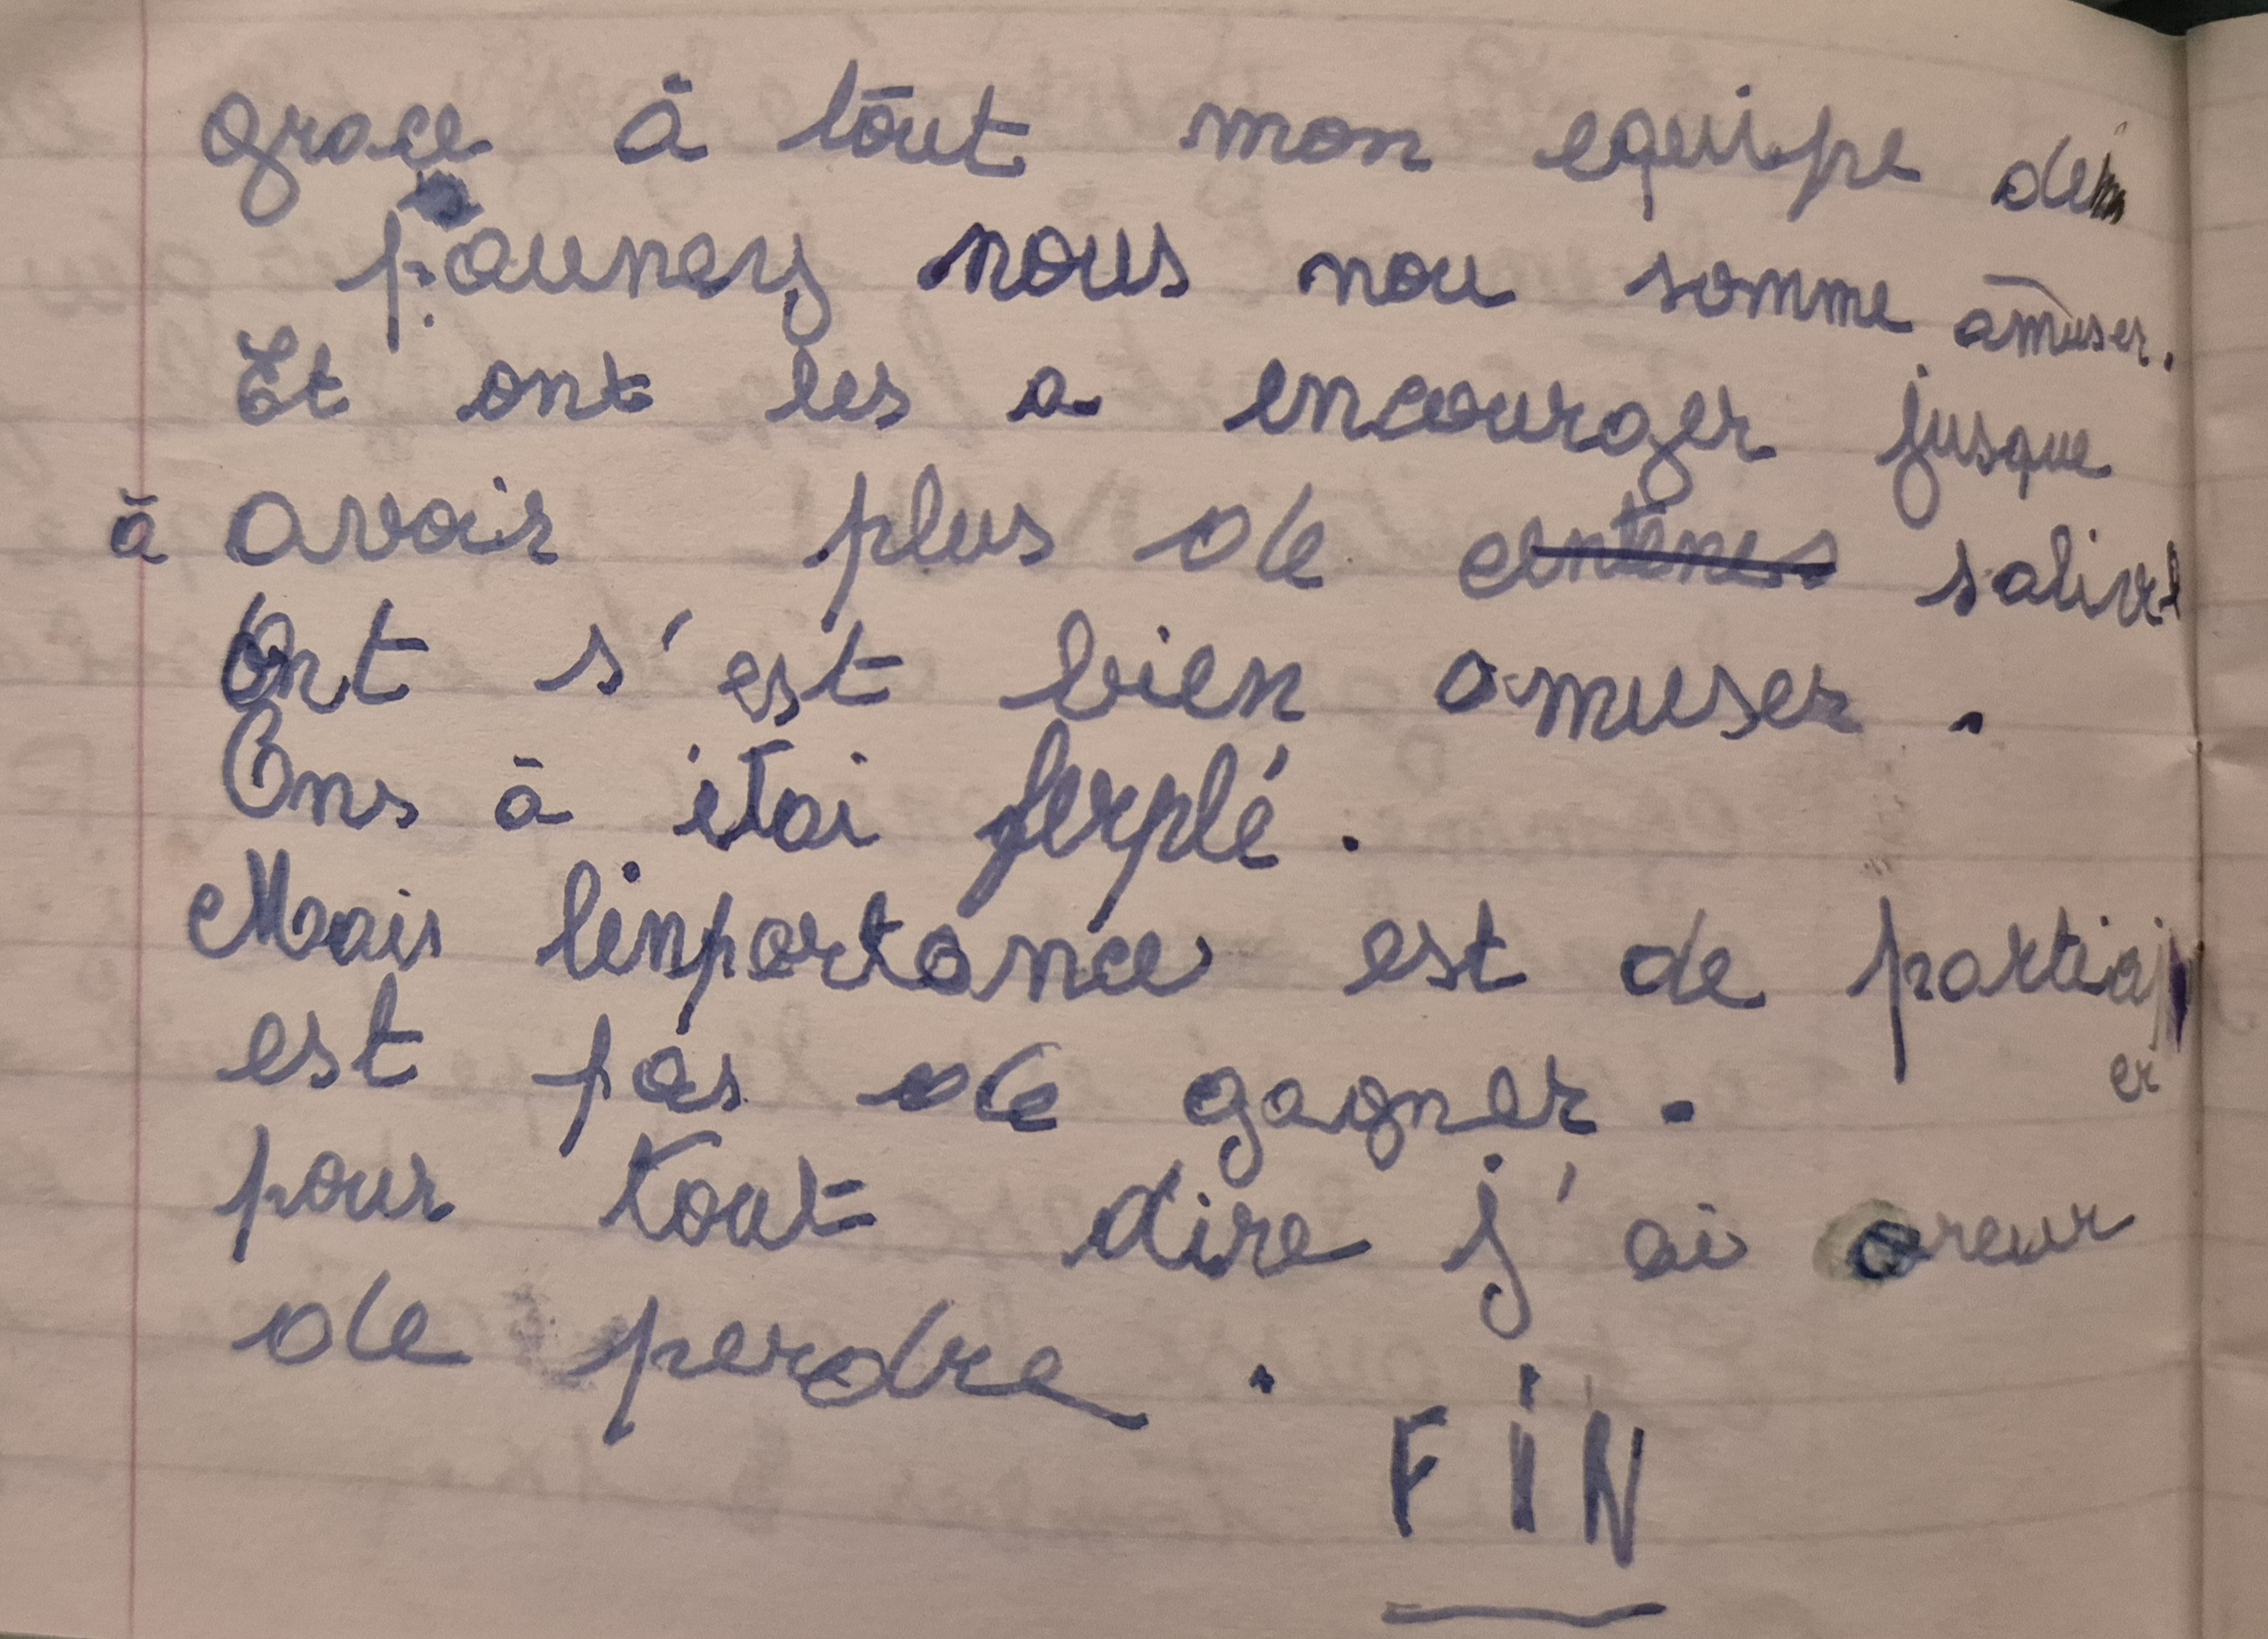 grace à tout mon equipe de
pauney nous nou somme amuser.
Et ont les a encourager jusque
à avoir plus de salive
Ont s'est bien amuser.
Ons à étai ferplé.
Mais l'inportance est de partici
er
est pas de gagner.
pour tout dire j'ai oreur
de perdre.
FIN